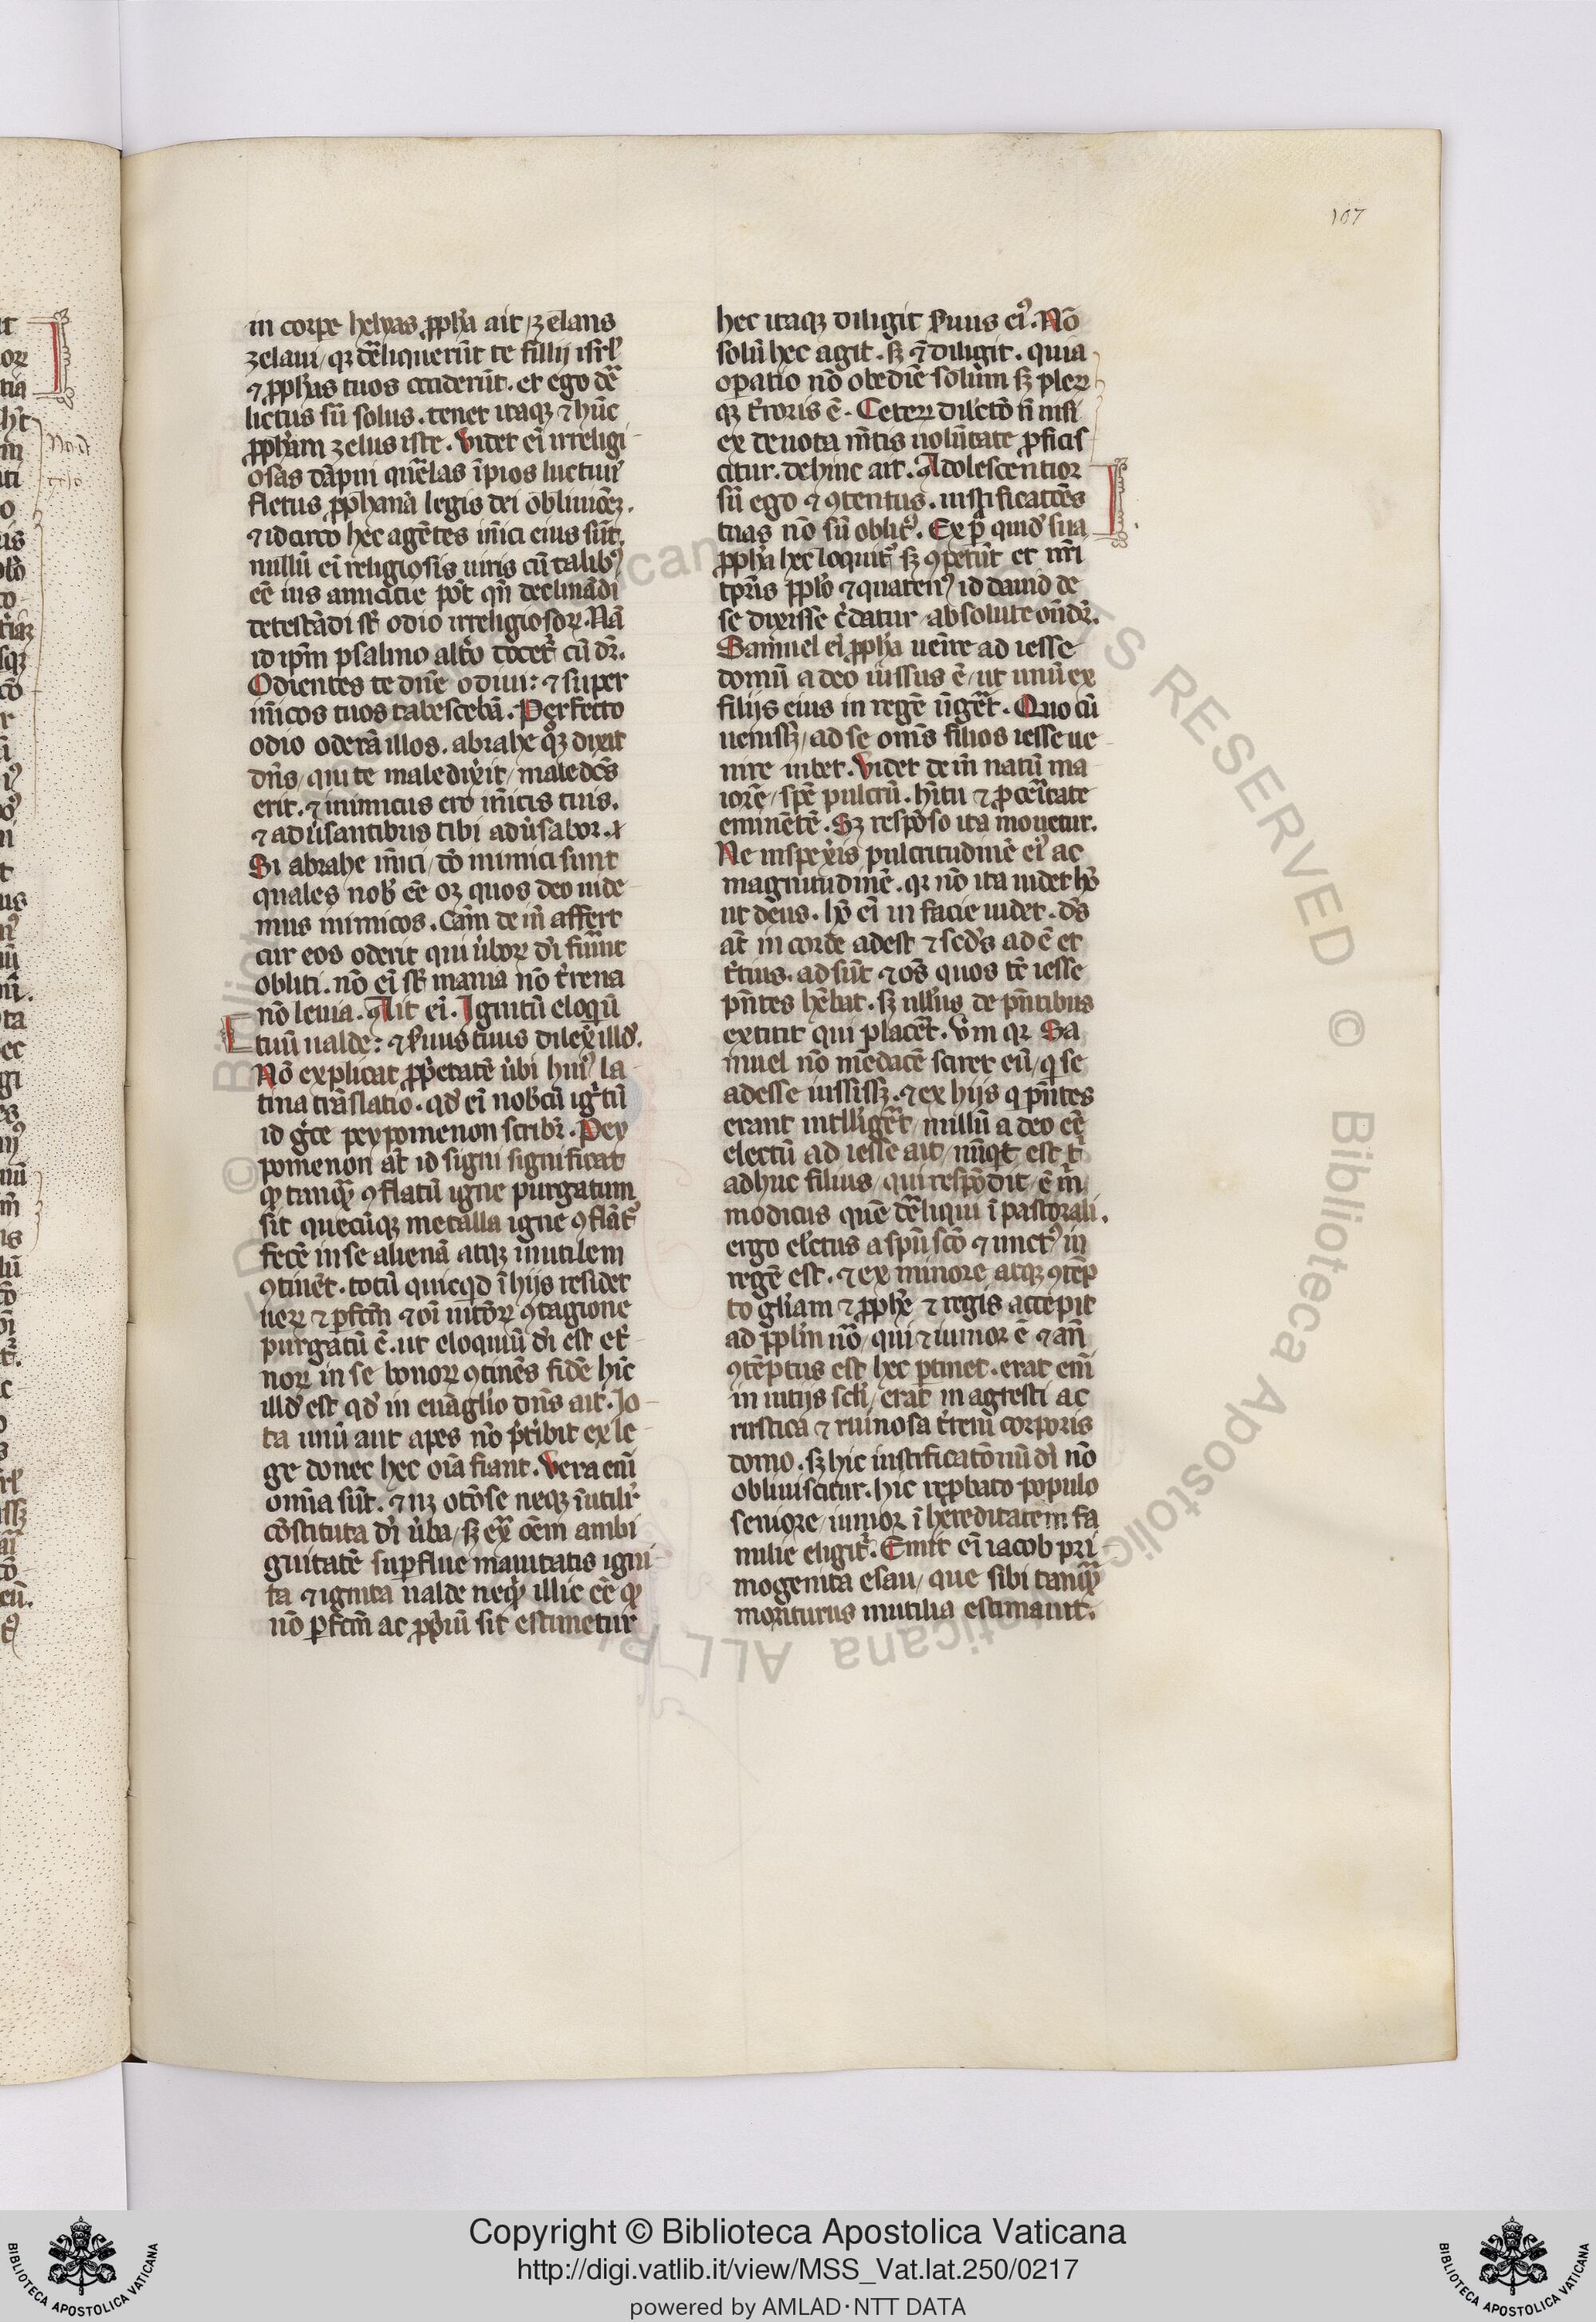 107
in corpe helyas ꝓpħa ait / zelans
zelaui / qꝫ dēliquerūt te fillij isrl̓
⁊ ꝓpħas tuos occiderūt . et ego de
lictus sū solus . tenet itaqꝫ ⁊ hūc
ꝓpħam zelus iste . Videt ei̅ irreligi
osas
fletus legis dei
⁊ idcirco hec agētes inīci eius sūt .
nullū ei̅ religiosis uiris cū talibꝰ
ee̅ ius amicitie pōt qn̄ declinādi
detestādi sꝫ odio irreligiosoꝝ . Nā
id ipm̄ psalmo altō docet cū dr̄ .
Odientes te dn̄e odiui : ⁊ super
inīcos tuos tabescebā . Perfecto
odio oderā illos . abrahe qꝫ dixit
dn̄s / qui te maledixit / maledc̄s
erit . ⁊ inimicus ero inīcis tuis .
⁊ adu̓santibus tibi adu̓sabor .
Si abrahe inīci / dō inimici sunt
quales nob̓ ee̅ oꝫ quos deo uide
mus inimicos . Cām dein̄ affert
cur eos oderit qui u̓boꝝ di̅ fuerūt
obliti . nō ei̅ sꝫ inania nō t̓rena
nō leuia . Ait ei̅ . Ignitū eloqu̅
tuū ualde : ⁊ s̓uus tuus dilex̓ illd̓ .
Nō explicat ꝓp̓etatē u̓bi huiꝰ la
tina trāslatio . qd̓ ei̅ nob̓cū ig̓tū
id g̓ce peypomenon scribr̄ . Pey
pomenon at̄ id signi significat
qꝫ tanqꝫ ꝯflatū igne purgatum
sit quecūqꝫ metalla igne ꝯflāt̓
fecē in se alienā atqꝫ inutilem
ꝯtinēt . totū quicqd̓ ī hijs residet
ueꝝ ⁊ ꝑfcm̄ ⁊ oi̅ uitōꝝ ꝯtagione
purgatū ē . ut eloquiū di̅ est et̓
noꝝ in se bonoꝝ ꝯtinēs fidē hīc
illd̓ est qd̓ in euāglio dn̄s ait . Jo
ta unū aut apes nō p̓t̓ibit ex le
ge donec hec oīa fiant . Vera em̄
omīa sūt . ⁊ nꝫ otōse neqꝫ īutilit̓
cōstituta di̅ u̓ba / sꝫ ex̓ oēm ambi
guitatē suꝑflue inanitatis igni
ta ⁊ ignita ualde neqꝫ illic ee̅ qꝫ
nō ꝑfcm̄ ac ꝓp̓iū sit estimetur
hec itaqꝫ diligit s̓uus eiꝰ . Nō
solū hec agit . sꝫ ⁊ diligit . quia
oꝑatio nō obediē solūm sꝫ pleꝝ
qꝫ t̓roris ē . Ceteꝝ dilctō n̄ nisi
ex deuota mētis uolūtate ꝓficis
citur . dehinc ait . Adolescentior
sū ego ⁊ ꝯtentus . iustificatiōes
tuas nō sū oblitꝰ . Ex ꝑ quid̓ sua
ꝓpħa hec loquit̓ sꝫ ꝯpetūt et nr̄i
tꝑis ꝓplo ⁊ quatenꝰ id dauid de
se dixisse c̓datur absolute ōndr̄ .
Samuel ei̅ ꝓpħa uenire ad iesse
domū a deo iussus ē / ut unū ex
filijs eius in regē ūgeret . Quo cū
uenissꝫ / ad se omīs filios iesse ue
nire iubet . Videt dein̄ natū ma
iorē / spē pulcrū . hītu ⁊ ꝓceritate
eminētē . Sꝫ respōso ita mouetur .
Ne inspex̓is pulcritudinē eiꝰ ac
magnitudinē . qꝛ nō ita uidet hō
ut deus . hō ei̅ in facie uidet . ds̄
at̄ in corde adest ⁊ secd̓s ad ē et
t̓tius . ad sūt ⁊ oēs quos tc̄ iesse
pn̄tes hēbat . sꝫ nllus de pn̄tibus
extitit qui placeret . Vm̄ qꝛ Sa
muel nō mēdacē sciret eū / q se
adesse iussissꝫ . ⁊ ex hijs q pn̄tes
erant intlligeret / nullū a deo ee̅
electū ad iesse ait / nūqd̓ est t̓
adhuc filius / qui respōdit / ē m̓
modicus quē dēliqui ī pastorali .
ergo elctus a spū scō ⁊ unctꝰ in
regē est . ⁊ ex minore atqꝫ ꝯtēp
to gliam ⁊ ꝓpħe ⁊ regis accepit
ad ꝓplm̄ nr̄m / qui ⁊ iunior ē ⁊ an̄
ꝯtēptus est hec ꝑtinet . erat em̄
in uitijs scl̓i / erat in agresti ac
rustica ⁊ ruinosa t̓reni corporis
domo . sꝫ hic iustificatōnū di̅ nō
obliuiscitur . hic reꝓbato populo
seniore / iunior ī hereditatem fa
milie eligit̓ . Emit ei̅ iacob pri
mogenita esau / que sibi tanqꝫ
moriturus inutilia estimauit .
Copyright © Biblioteca Apostolica Vaticana
http://digi.vatlib.it/view/MSS_Vat.lat.250/0217
powered by AMLAD·NTT DATA
BIBLIOTECA APOSTOLICA VATICANA
BIBLIOTECA APOSTOLICA VATICANA